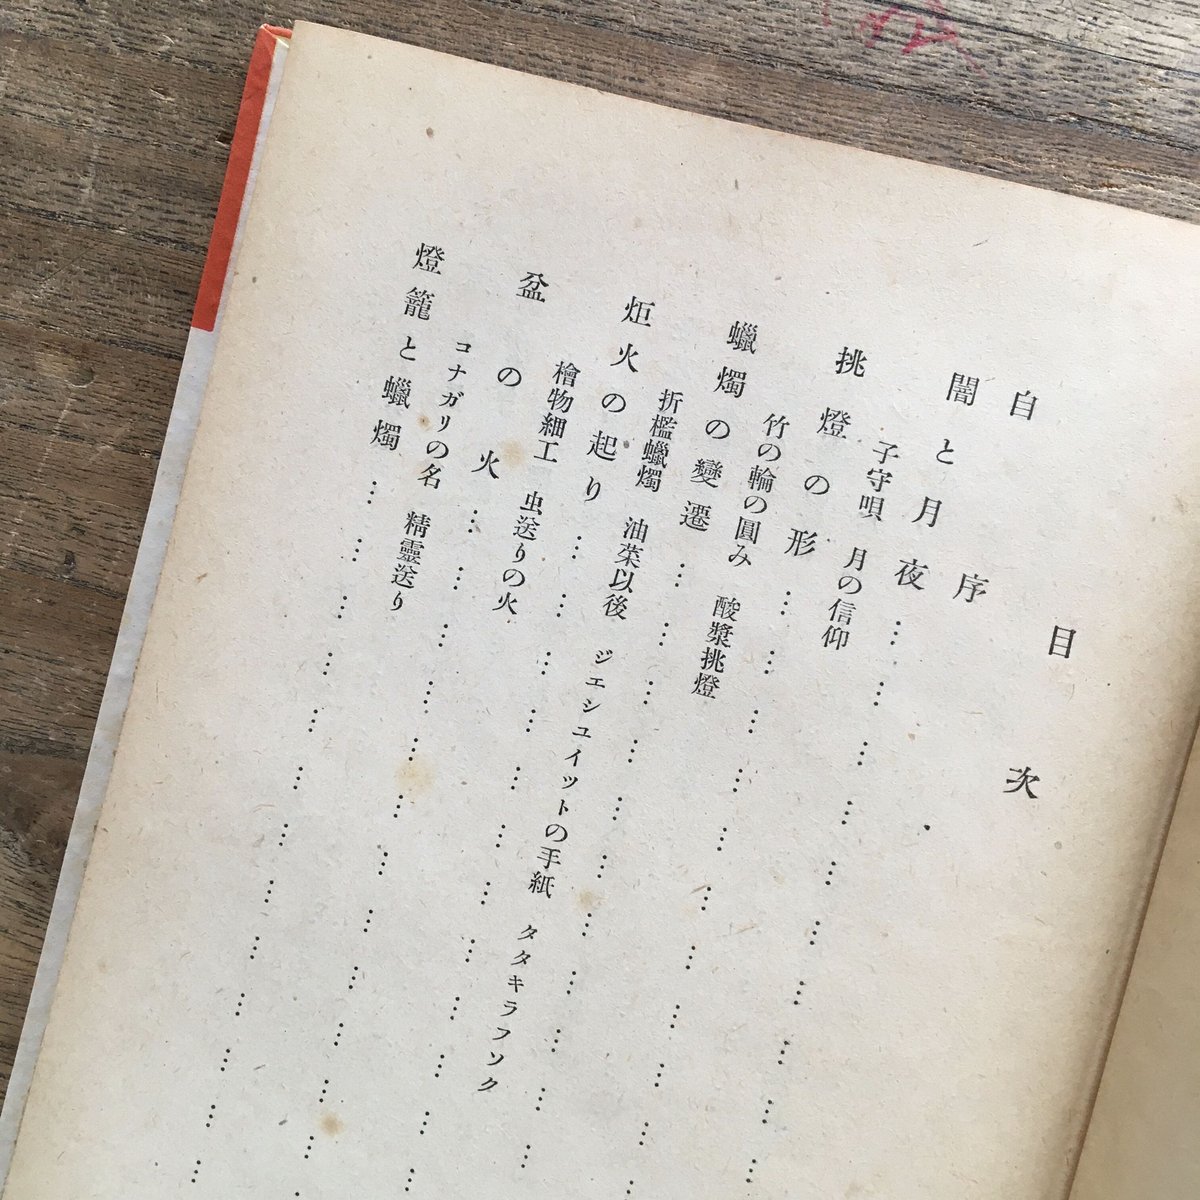 目次
自序
闇と月夜………………………………
子守唄　月の信仰
挑燈の形………………………………
竹の輪の圓み　酸漿挑燈
蠟燭の變遷………………………………
折檻蠟燭　油菜以後　ジエシユイツトの手紙　タタキラフソク
炬火の起り………………………………
檜物細工　虫送りの火
盆の火………………………………
コナガリの名　精靈送り
燈籠と蠟燭………………………………